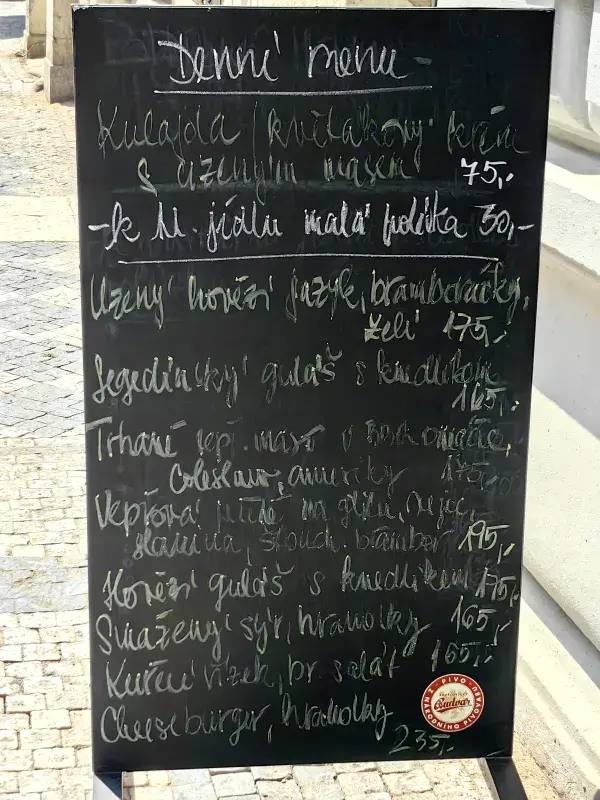 Denní menu
Kulajda / květákový krém
s uzeným masem 75,-
- k hl. jídlu malá polévka 30,-
Uzený hovězí jazyk, bramboráčky,
zelí 175,-
Segedínský guláš s knedlíkem
165,-
Trhané vepř. maso v omáčce,
coleslaw, ameriky 175,-
Vepřová játra na grilu,
slanina, šťouch. brambor 195,-
Hovězí guláš s knedlíkem 175,-
Smažený sýr, hranolky 165,-
Kuřecí řízek, br. salát 165,-
Cheeseburger, hranolky
235,-
PIVO
Budvar
Z NÁRODNÍHO PIVOVARU